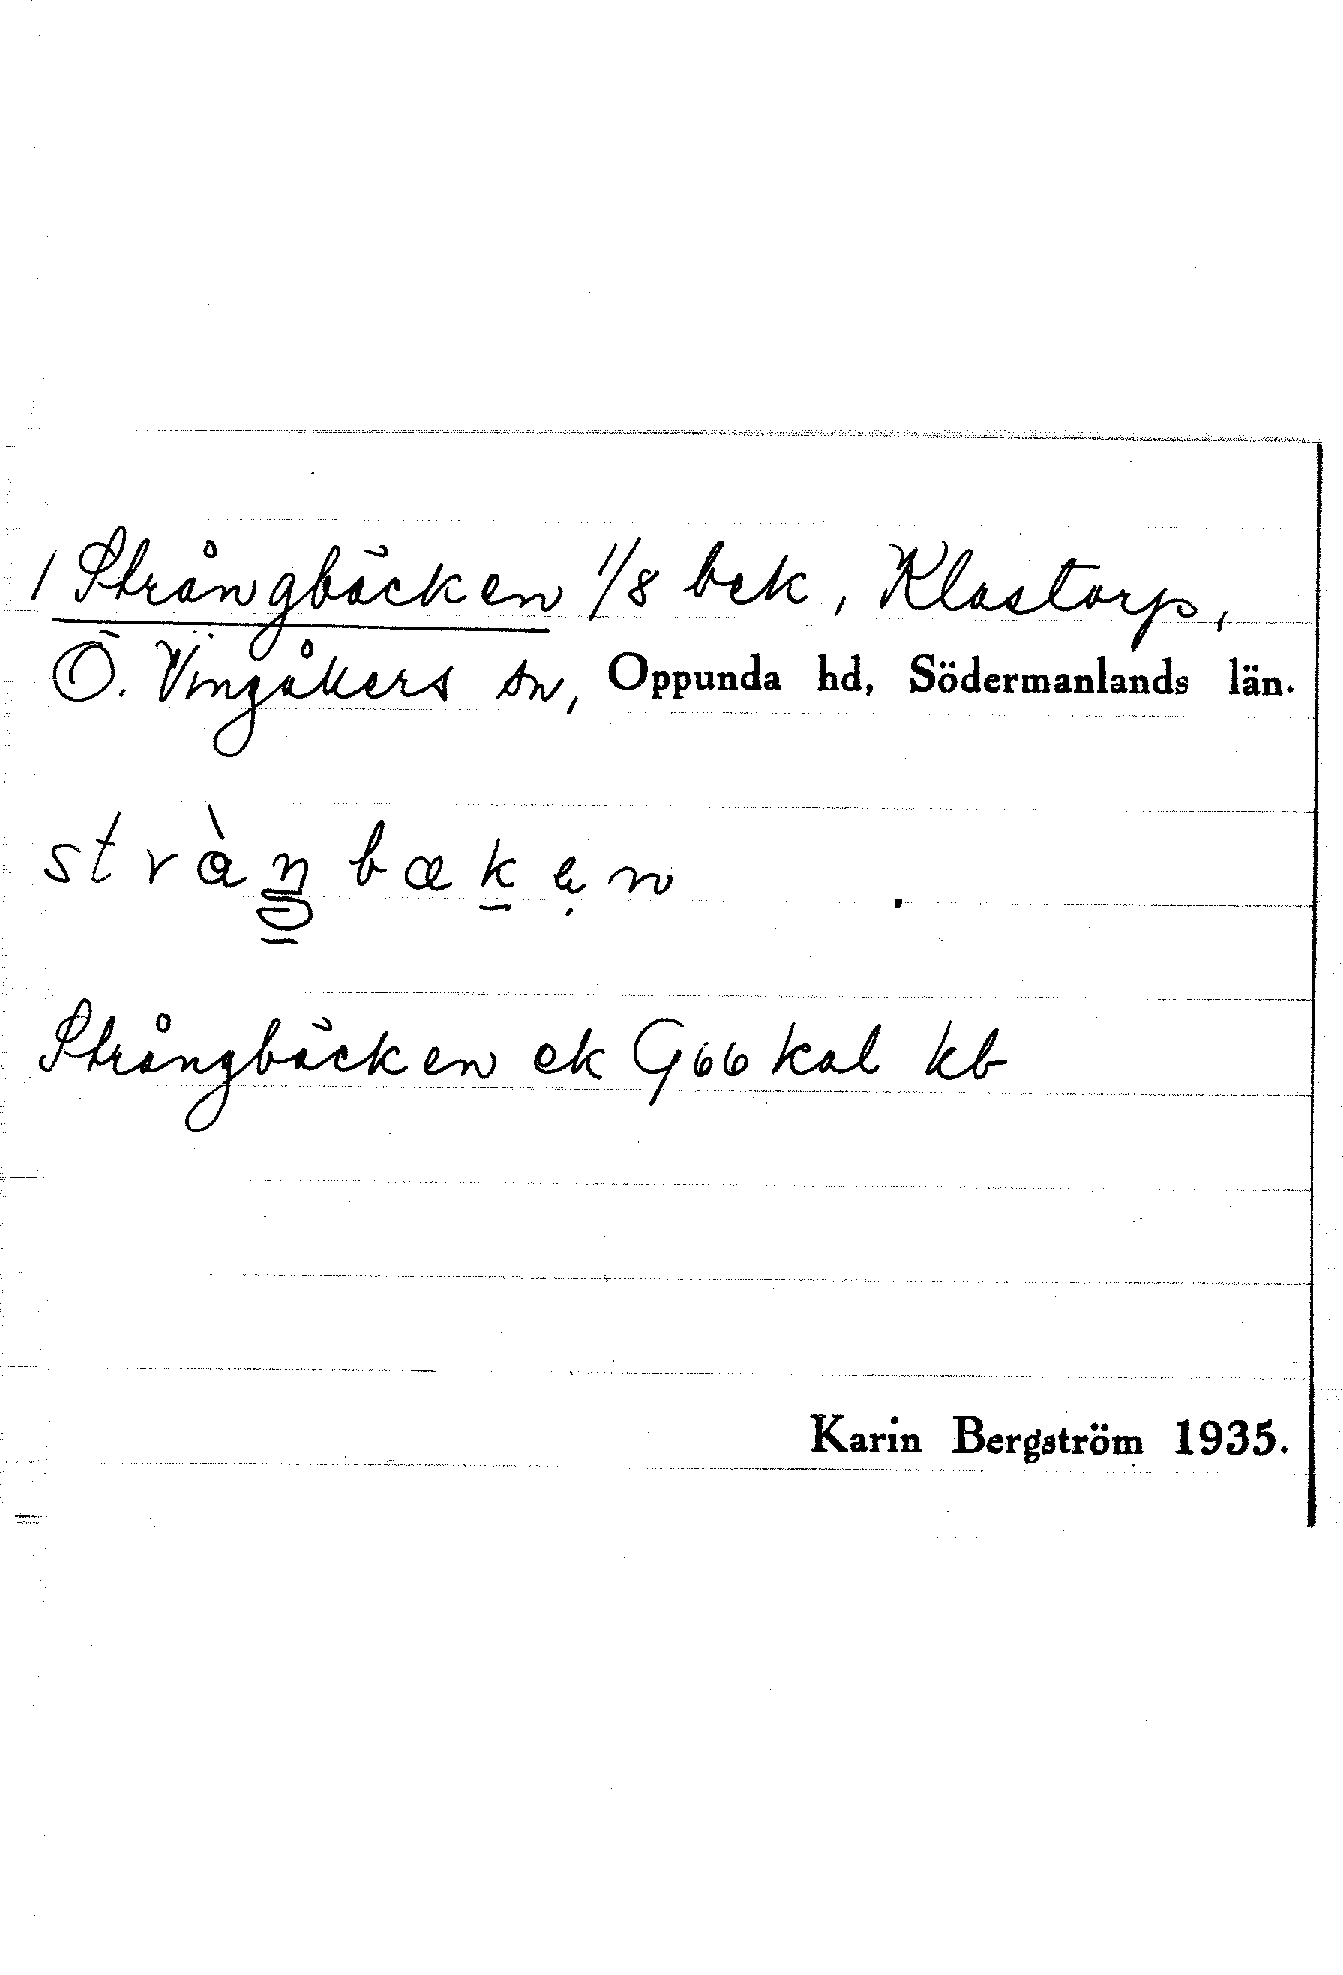 1 Strångbäcken 1/8 bck, Klastorp,
Ö. Vingåkers sn, Oppunda hd, Södermanlands län.
stràŋbækẹn
Strångbäcken ek G66 kal kb
Karin Bergström 1935.